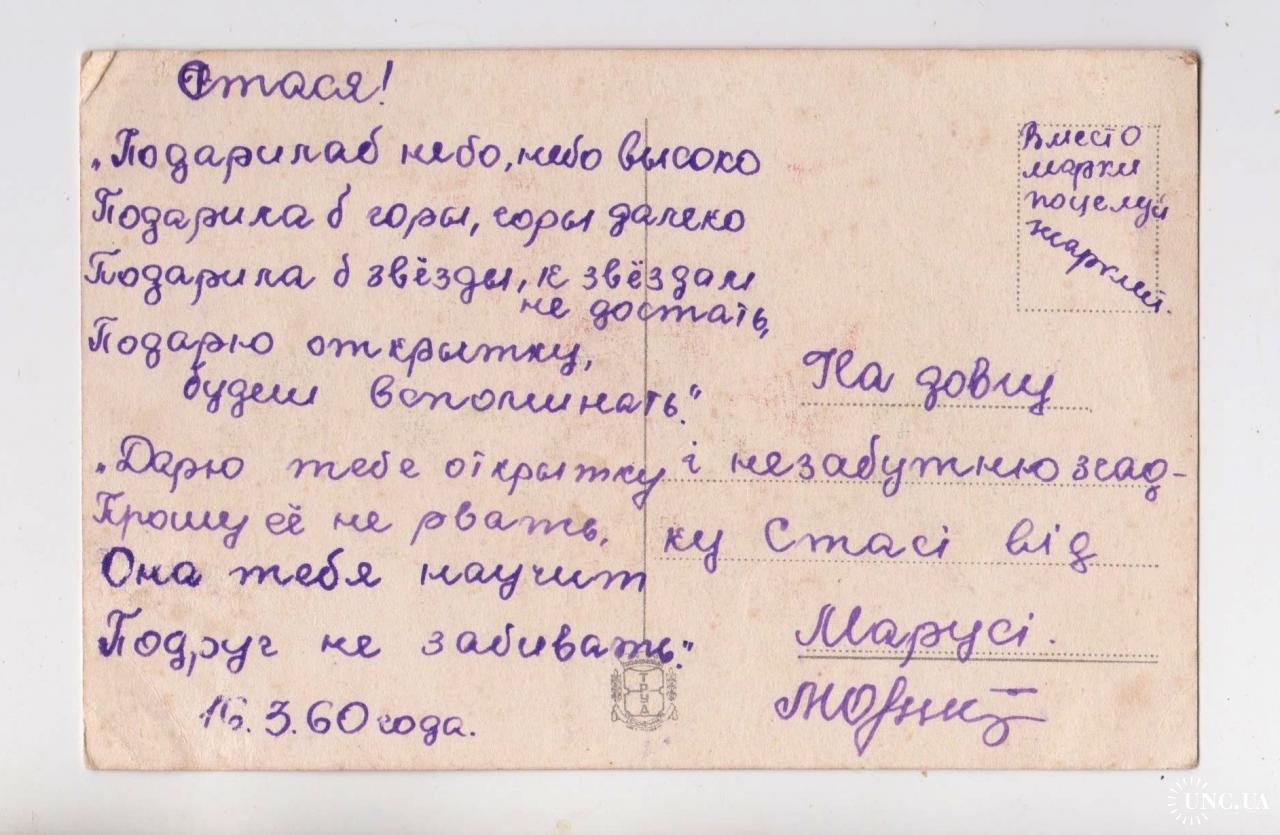 Стася!
„Подарилаб небо, небо высоко
Подарила б горы, горы далеко
Подарила б звёзды, к звёздам
не достать,
Подарю открытку,
будеш вспоминать."
„Дарю тебе открытку
Прошу её не рвать,
Она тебя научит
Подруг не забивать."
16.3.60 года.
Вместо
марки
поцелуй
жаркий.
На довгу
і незабутню згад-
ку Стасі від
Марусі.
ТРУД
UNC.UA